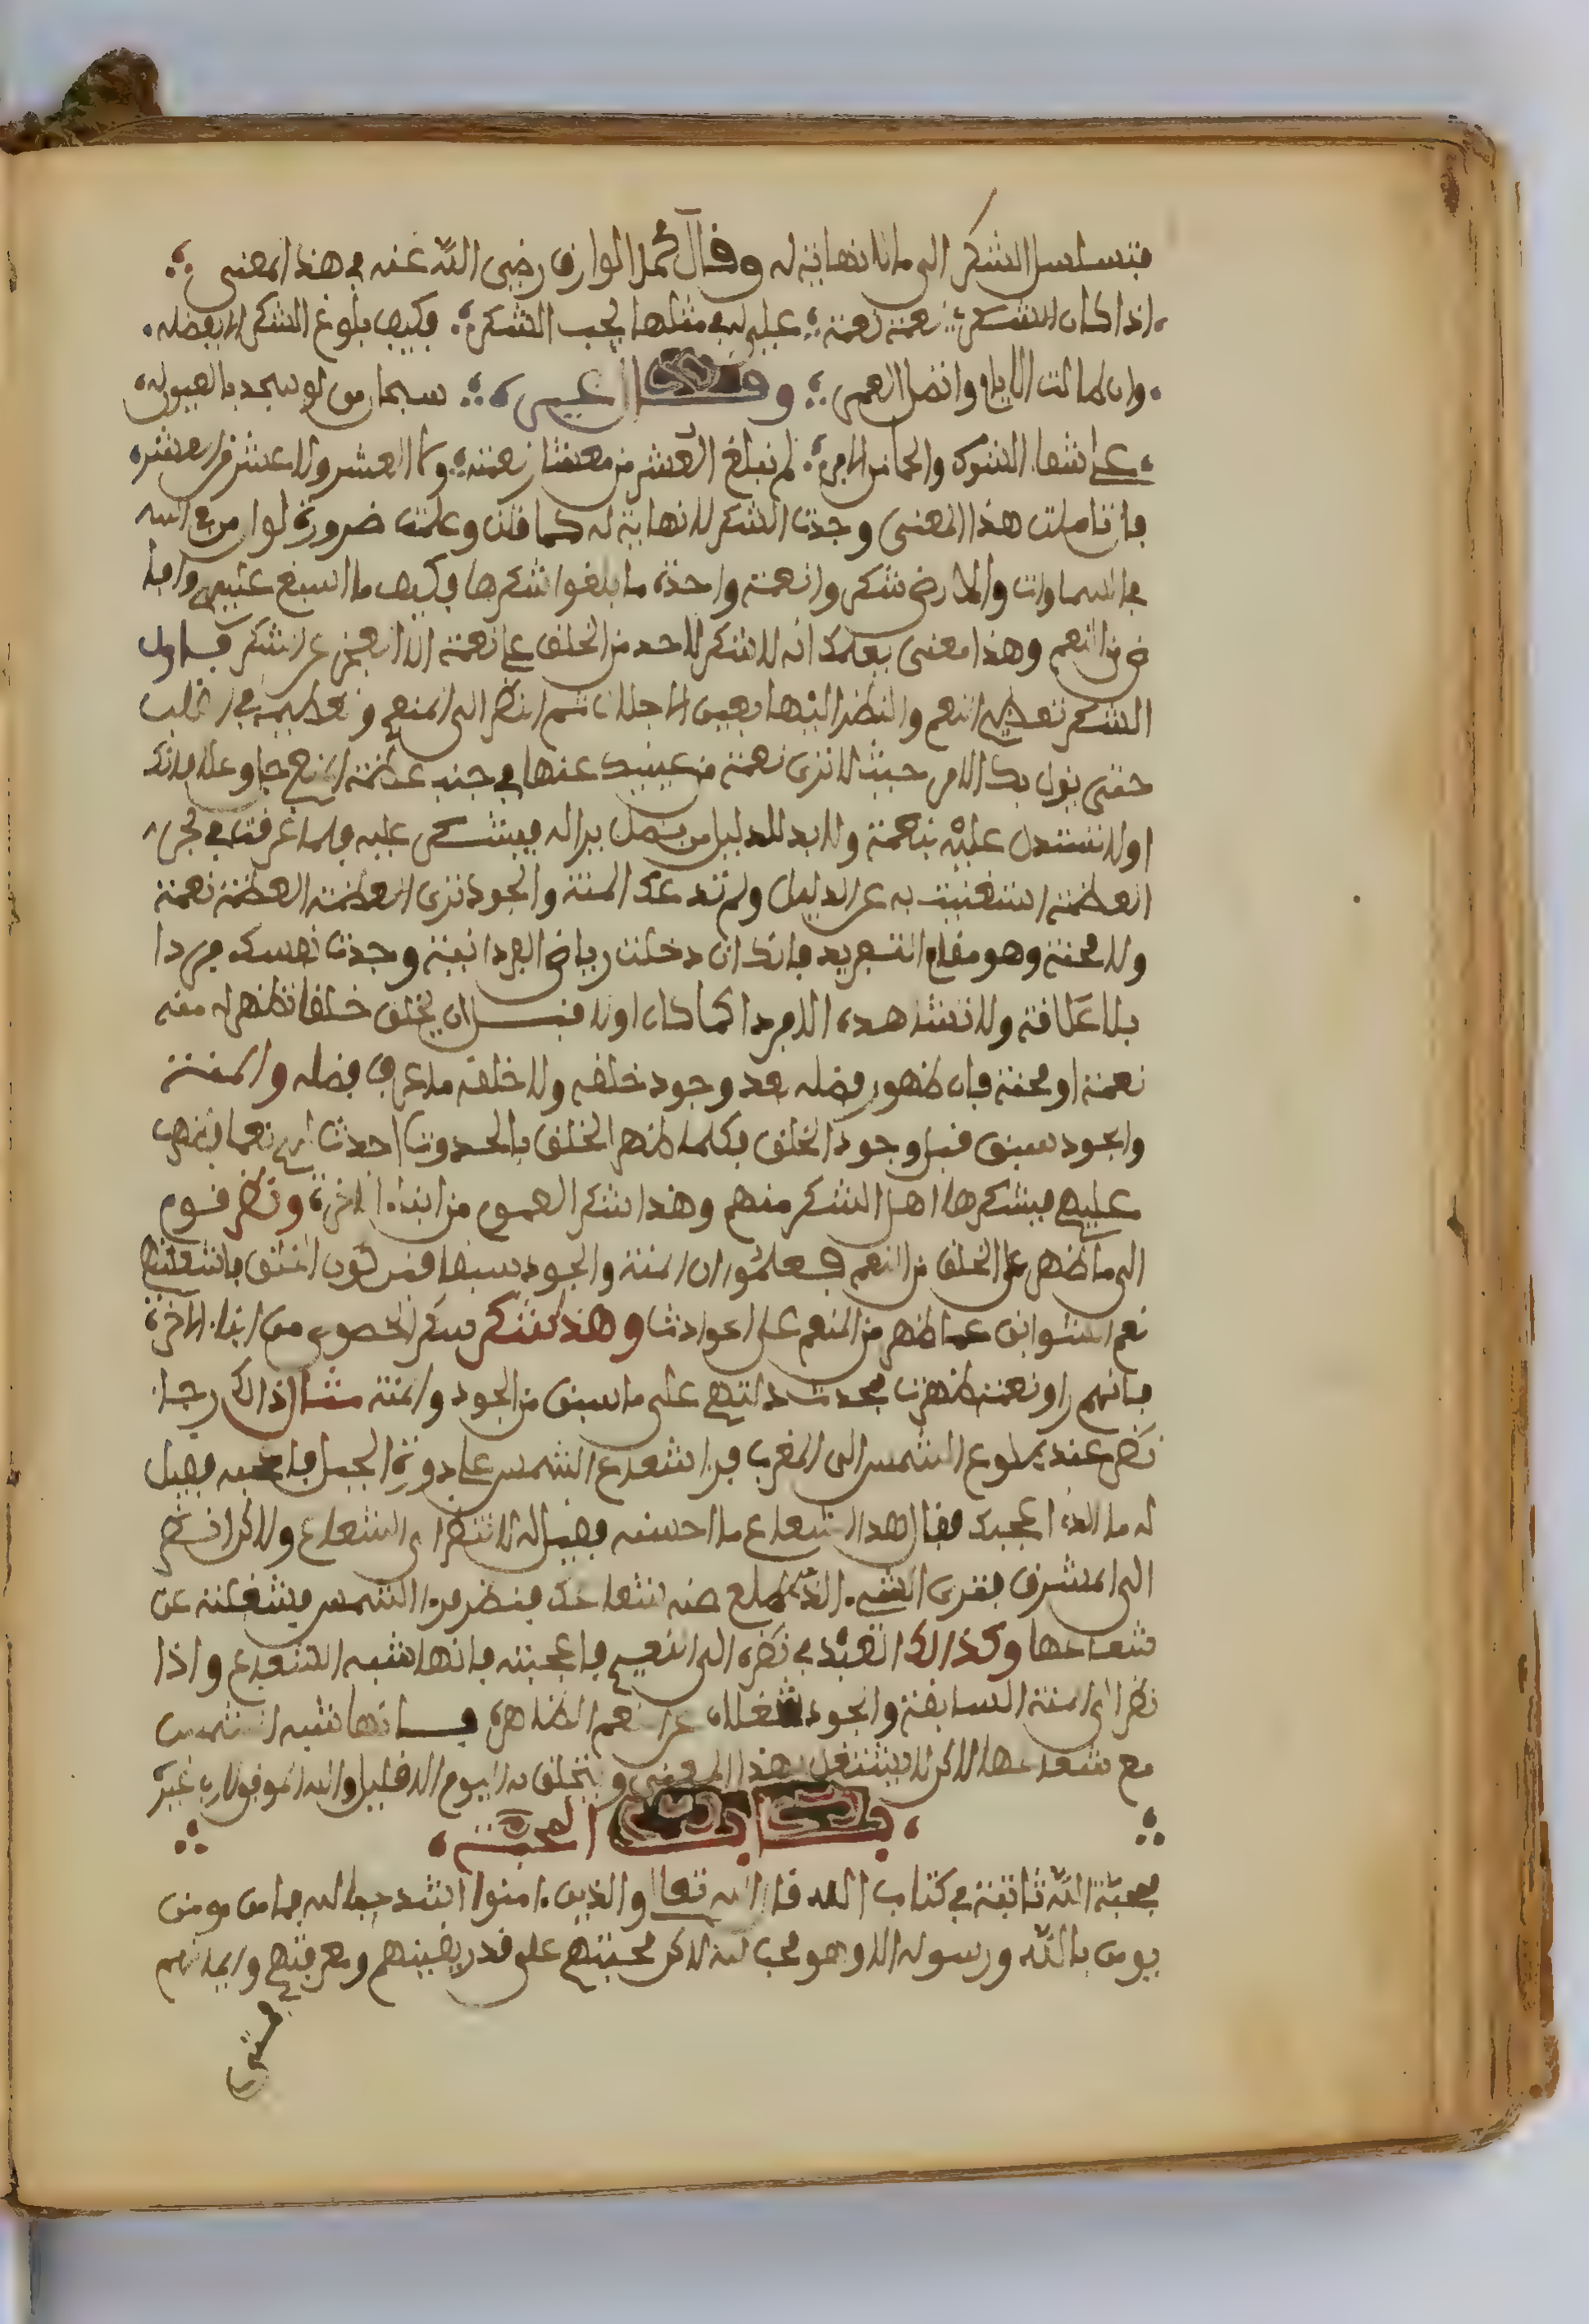 فتسلسل الشكر الى ما لا نهاية له وقال محمد الوراق رضي الله عنه في هذا المعنى
اذا كان الشكر نعمة نعمة علي له في مثلها يجب الشكر فكيف بلوغ الشكر الا بفضله
وان طالت الايام واتصل العمر وقال غيره سبحان من لو سجد بالعيون له
على شفا الشوك والمحما من الابر لم نبلغ العشر من معشار نعمته ولا العشير ولا عشر من العشر
فان تاملت هذا المعنى وجدت الشكر لا نهاية له كما قلت وعلمت ضرورة لو ان من في السما
في السماوات والارض شكروا نعمة واحدة ما بلغوا شكرها فكيف ما اسبغ عليهم وافا
ض من النعم وهذا معنى يعلمك انه لا شكر لاحد من الخلق على نعمة الا العجز عن الشكر فاول
الشكر تعظيم النعم والنظر اليها بعين الاجلال ثم النظر الى المنعم وتعظيمه في القلب
حتى يول بك الامر حيث لا ترى نعمة من عيبك عنها في جنب عظمة المنعم جل وعلا فانك
اولا تستدل عليه بنعمة ولا بد للدليل من فضل يراله فيشكر عليه فلما غرقت في بحر
العظمة استغنيت به عن الدليل ولم تدعك المنة والجود ترى العظمة العظمة نعمة
ولا محنة وهو مقام التفريد فانك ان دخلت رياض الفردانية وجدت نفسك فردا
بلا علاقة ولا تشاهده الا فردا كما كان اولا قبل ان يخلق خلقا تظهر له منه
نعمة او محنة فان ظهور فضله بعد وجود خلقه ولا خلقه ما عرف فضله والمنة
والجود سبق قبل وجود الخلق فكلما ظهر الخلق بالحدوث احدث لهم نعما تظهر
عليهم فيشكرها اهل الشكر منهم وهذا شكر العموم من ابناء الاخرة ونظر قوم
الى ما ظهر على الخلق من النعم فعلموا ان المنة والجود سبقا قبل كون الخلق فاشغلتهم
نعم السوابق عما ظهر من النعم على الحوادث وهذا شكر الخصوص من ابناء الاخرة
فانهم راوا نعمة ظهرت محدث دلتهم على ما سبق من الجود والمنة مثال ذالك رجل
نظر عند طلوع الشمس الى المغرب فرا شعاع الشمس على دورة الجبل فاعجبه فقيل
له ما الذي اعجبك فقال هذا الشعاع ما احسنه فقيل له لا تنظر الى الشعاع ولاكن انظر
الى المشرق فترى الشيء الذي طلع منه شعاعك فنظر فرا الشمس فيشغلته عن
شعاعها وكذالك العبد في نظره الى النعيم فاعجبته فانها شبه الشعاع واذا
نظر الى المنة السابقة والجود شغلاه عن النعم الظاهرة فانها شبه الشمس
مع شعاعها لاكن لا يشتغل بهذا المعنى ويتخلق به اليوم الا قليل والله الموفق لا رب غيره
باب ذكر المحبة
محبة الله ثابتة في كتاب الله قال الله تعالى والذين ءامنوا اشد حبا لله فما من مومن
يومن بالله ورسوله الا وهو محب لله لاكن محبتهم على قدر يقينهم ومعرفتهم وايمانهم